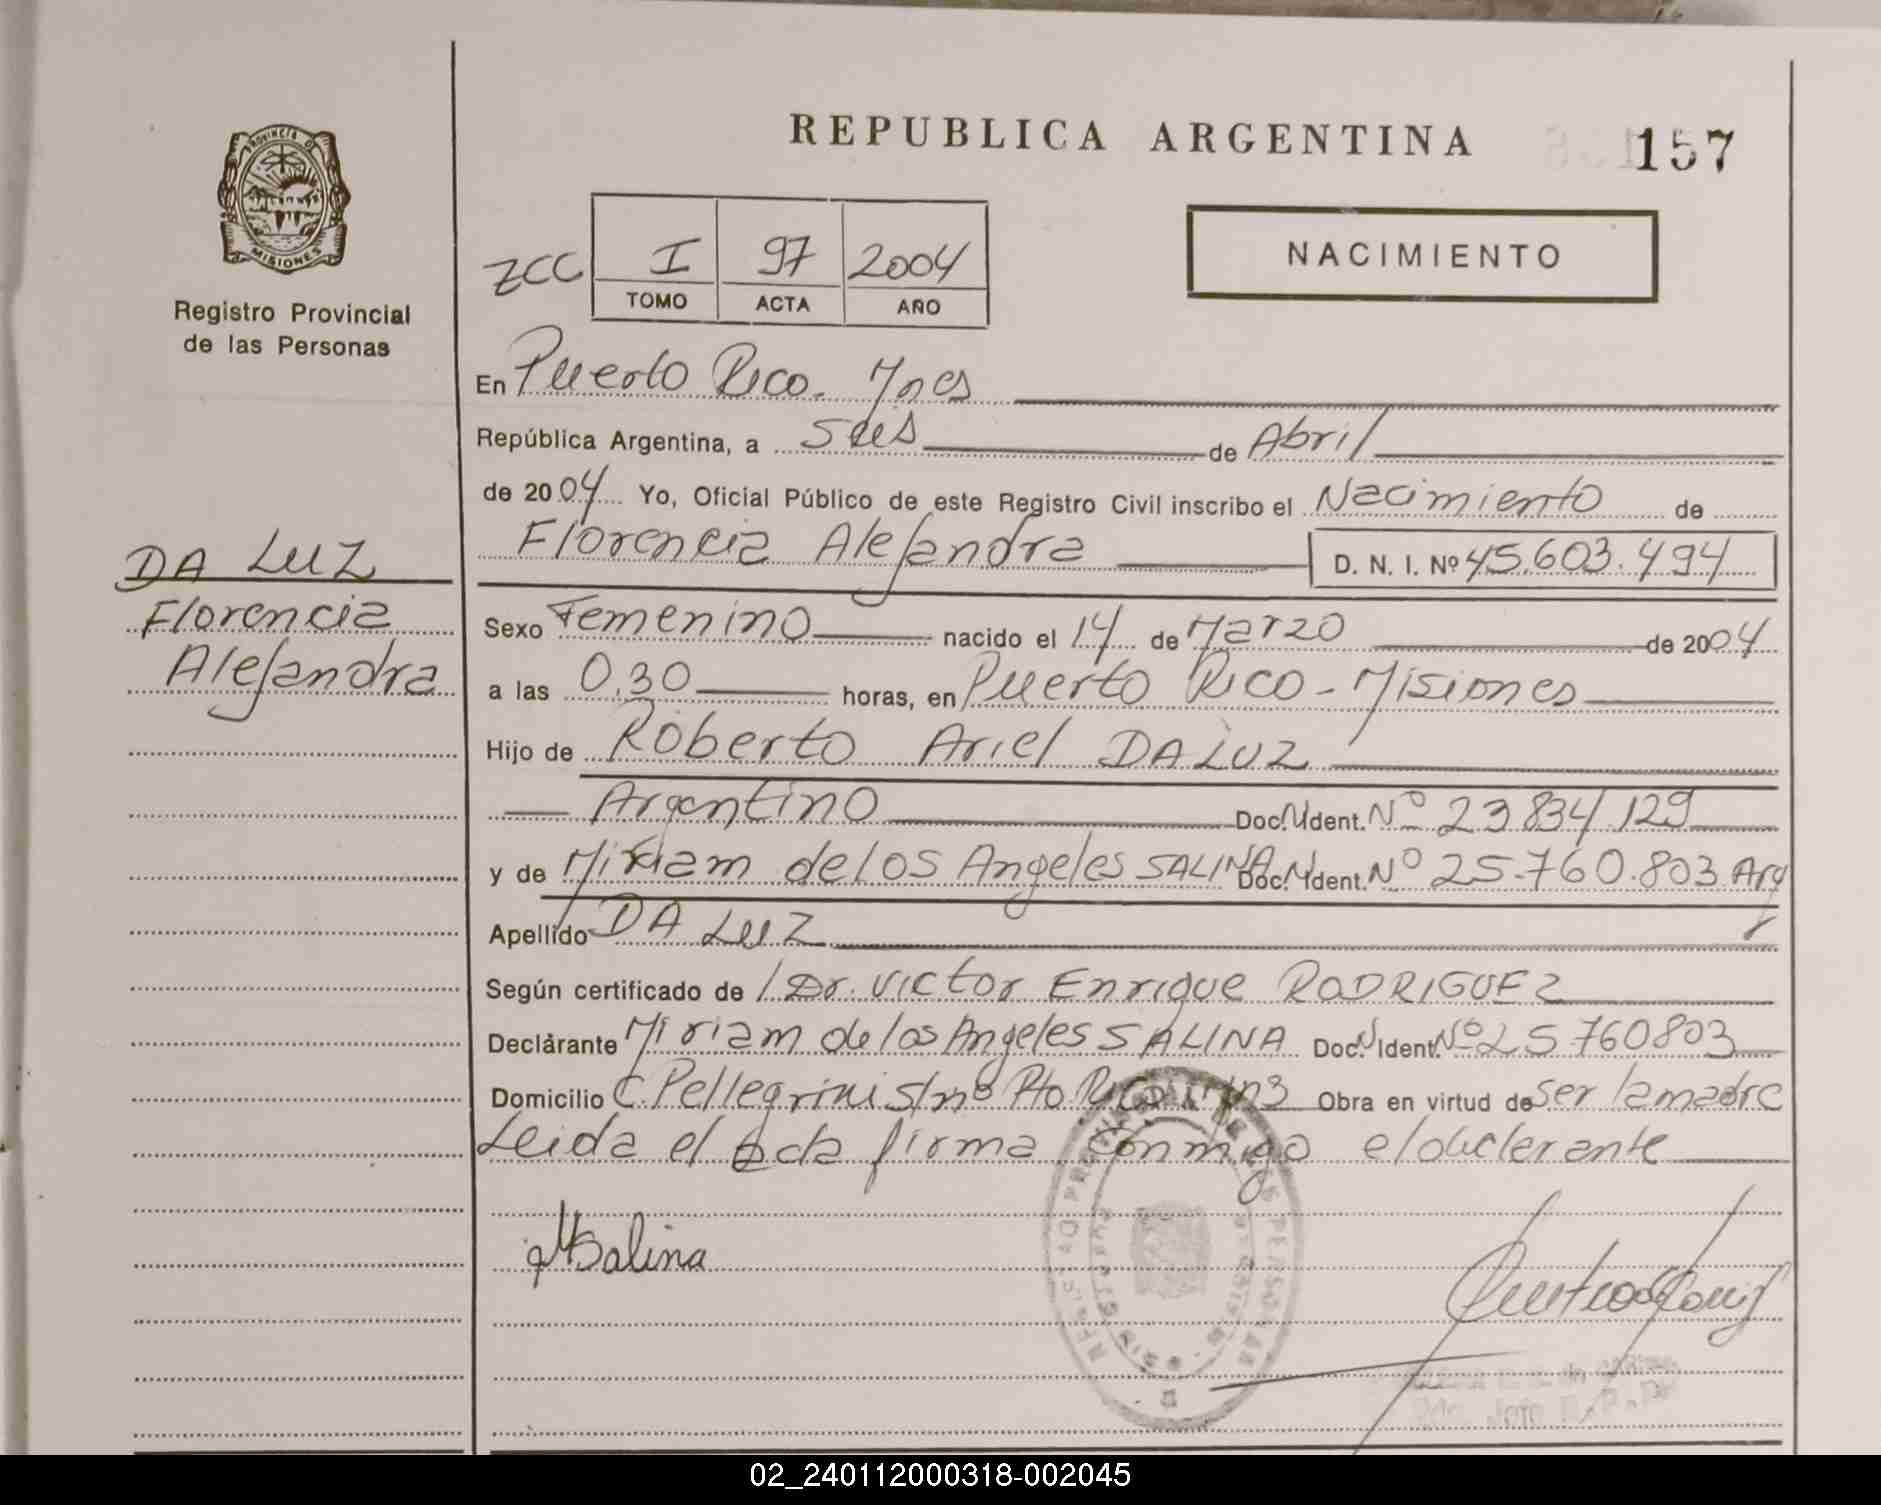 REPUBLICA ARGENTINA
157
PROVINCIA DE
MISIONES
Registro Provincial
de las Personas
NACIMIENTO
ZCC I 97 2004
TOMO ACTA AÑO
En Puerto Rico. Mnes
República Argentina, a seis de Abril
de 2004 Yo, Oficial Público de este Registro Civil inscribo el Nacimiento de
Florencia Alejandra D. N. I. Nº 45.603.494
DA LUZ
Florencia
Alejandra
Sexo Femenino nacido el 14 de Marzo de 2004
a las 0.30 horas, en Puerto Rico - Misiones
Hijo de Roberto Ariel DA LUZ
Argentino Doc. Ident. Nº 23834129
y de Miriam de los Angeles SALINA Doc. Ident. Nº 25.760.803 Arg
Apellido DA LUZ
Según certificado de Dr. Victor Enrique RODRIGUEZ
Declarante Miriam de los Angeles SALINA Doc. Ident. Nº 25760803
Domicilio C. Pellegrini s/nº Pto. Rico Obra en virtud de ser la madre
Leida el acta firma conmigo el declerante
MSalina
02_240112000318-002045